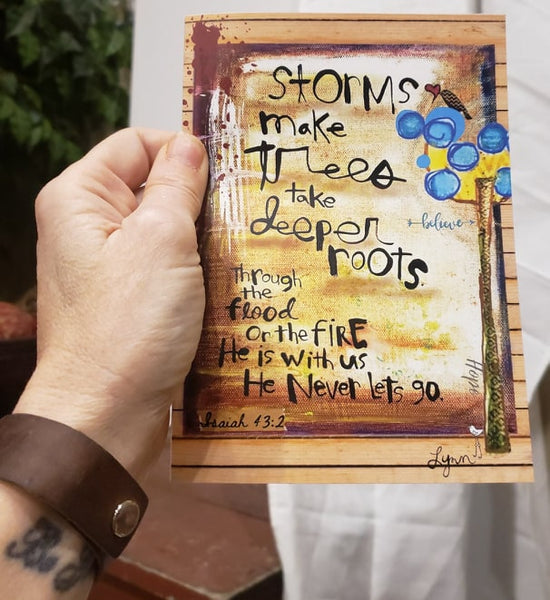 Storms
make
Trees
take
deeper
roots.
believe
Through
the
flood
or the fIRE
He is with us
He Never lets go.
Hope
Isaiah 43:2
Lynn